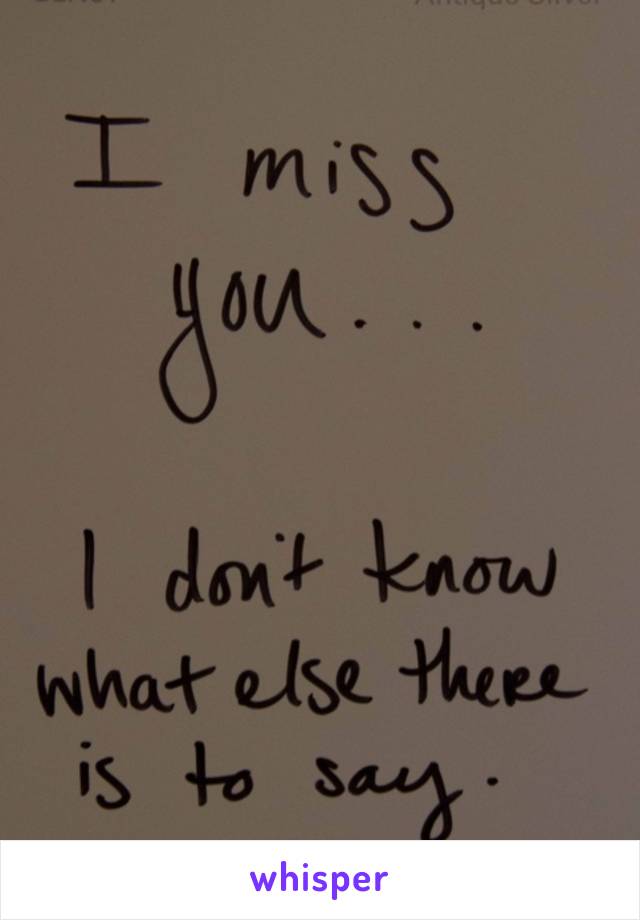 I miss
you...
I don't know
what else there
is to say.
whisper